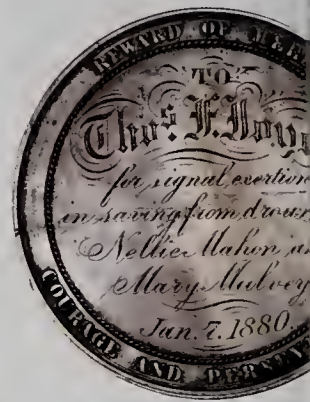 REWARD OF MER
TO
Thos F.
for signal exertion
in saving from drown
Nellie Mahon
Mary Mulvey
Jan. 7. 1880.
COURAGE AND PERSON